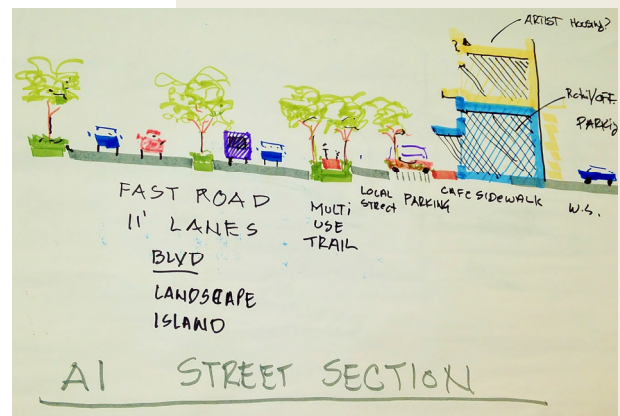 ARTIST Housing?
PARKING
FAST ROAD
11' LANES
BLVD
LANDSCAPE
ISLAND
MULTI
USE
TRAIL
LOCAL
STREET
PARKING
CAFE SIDEWALK
W.S.
A1 STREET SECTION